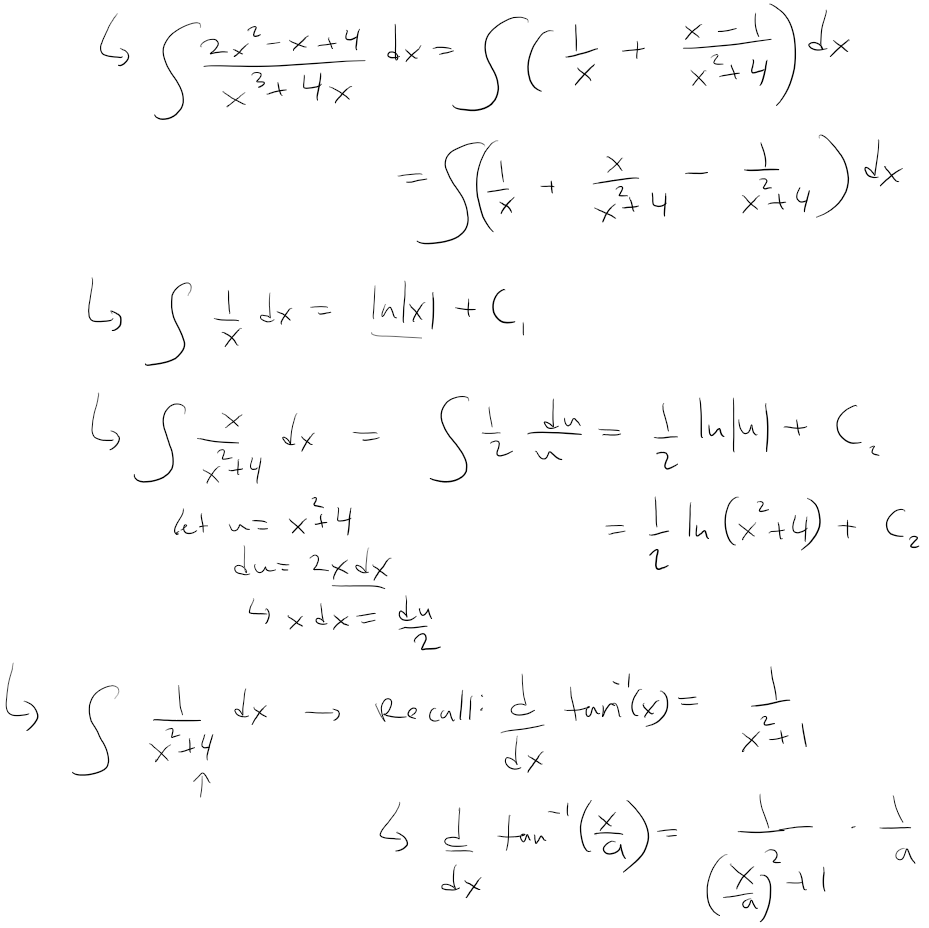 ↳ ∫ (2x² - x + 4)/(x³ + 4x) dx = ∫ (1/x + (x - 1)/(x² + 4)) dx
= ∫ (1/x + x/(x² + 4) - 1/(x² + 4)) dx
↳ ∫ 1/x dx = ln|x| + C₁
↳ ∫ x/(x² + 4) dx = ∫ 1/2 du/u = 1/2 ln|u| + C₂
let u = x² + 4 = 1/2 ln (x² + 4) + C₂
du = 2x dx
↳ x dx = du/2
↳ ∫ 1/(x² + 4) dx → Recall: d/dx tan⁻¹(x) = 1/(x² + 1)
↑
↳ d/dx tan⁻¹(x/a) = 1/((x/a)² + 1) · 1/a